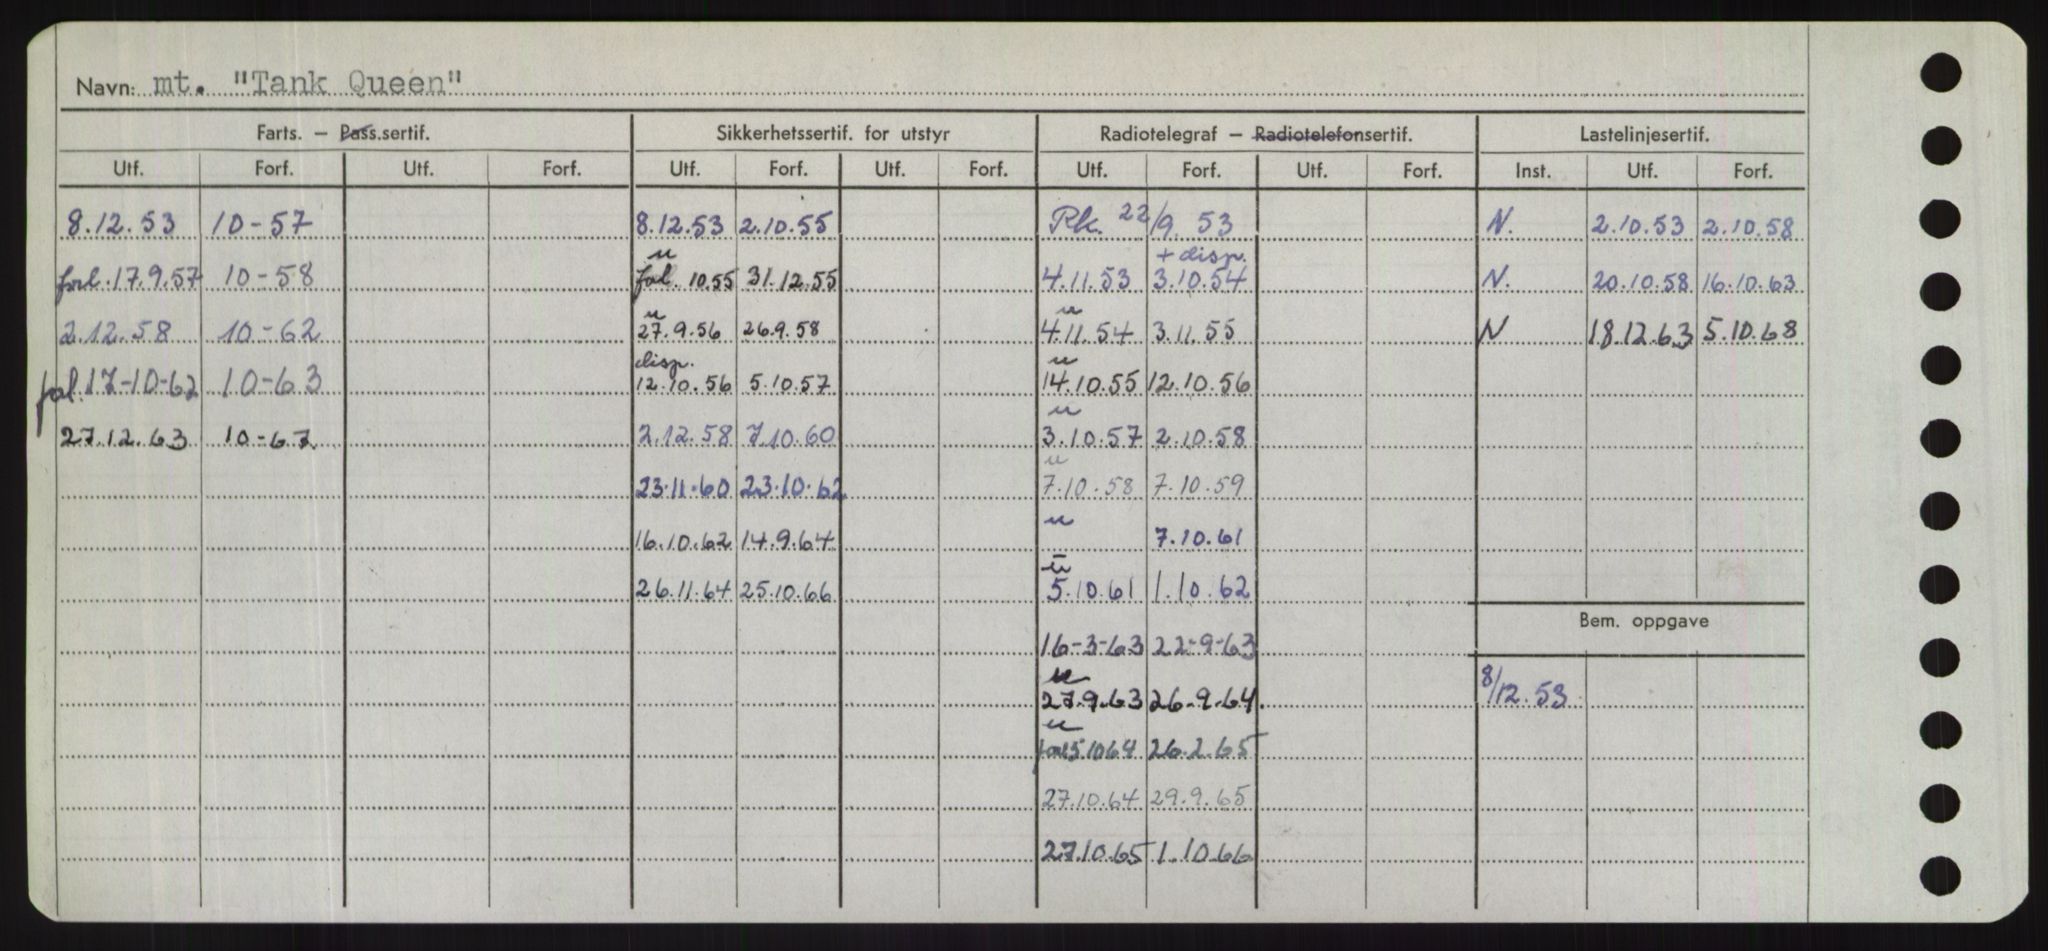 Navn: mt. "Tank Queen"
Farts. – Pass.sertif. Sikkerhetssertif. for utstyr Radiotelegraf – Radiotelefonsertif. Lastelinjesertif.
Utf. Forf. Utf. Forf. Utf. Forf. Utf. Forf. Utf. Forf. Utf. Forf. Inst. Utf. Forf.
8.12.53 10-57 8.12.53 2.10.55 Rk. 22/9. 53 N. 2.10.53 2.10.58
u + disp.
forl. 17.9.57 10-58 fol. 10.55 31.12.55 4.11.53 3.10.54 N. 20.10.58 16.10.63
u u
2.12.58 10-62 27.9.56 26.9.58 4.11.54 3.11.55 N 18.12.63 5.10.68
disp. u
fol. 17-10-62 10-63 12.10.56 5.10.57 14.10.55 12.10.56
u
27.12.63 10-67 2.12.58 7.10.60 3.10.57 2.10.58
u
23.11.60 23.10.62 7.10.58 7.10.59
u
16.10.62 14.9.64 7.10.61
u
26.11.64 25.10.66 5.10.61 1.10.62
Bem. oppgave
16-3-63 22-9-63
u
27.9.63 26-9.64. 8/12.53
u
5.10.64 26.2.65
27.10.64 29.9.65
27.10.65 1.10.66